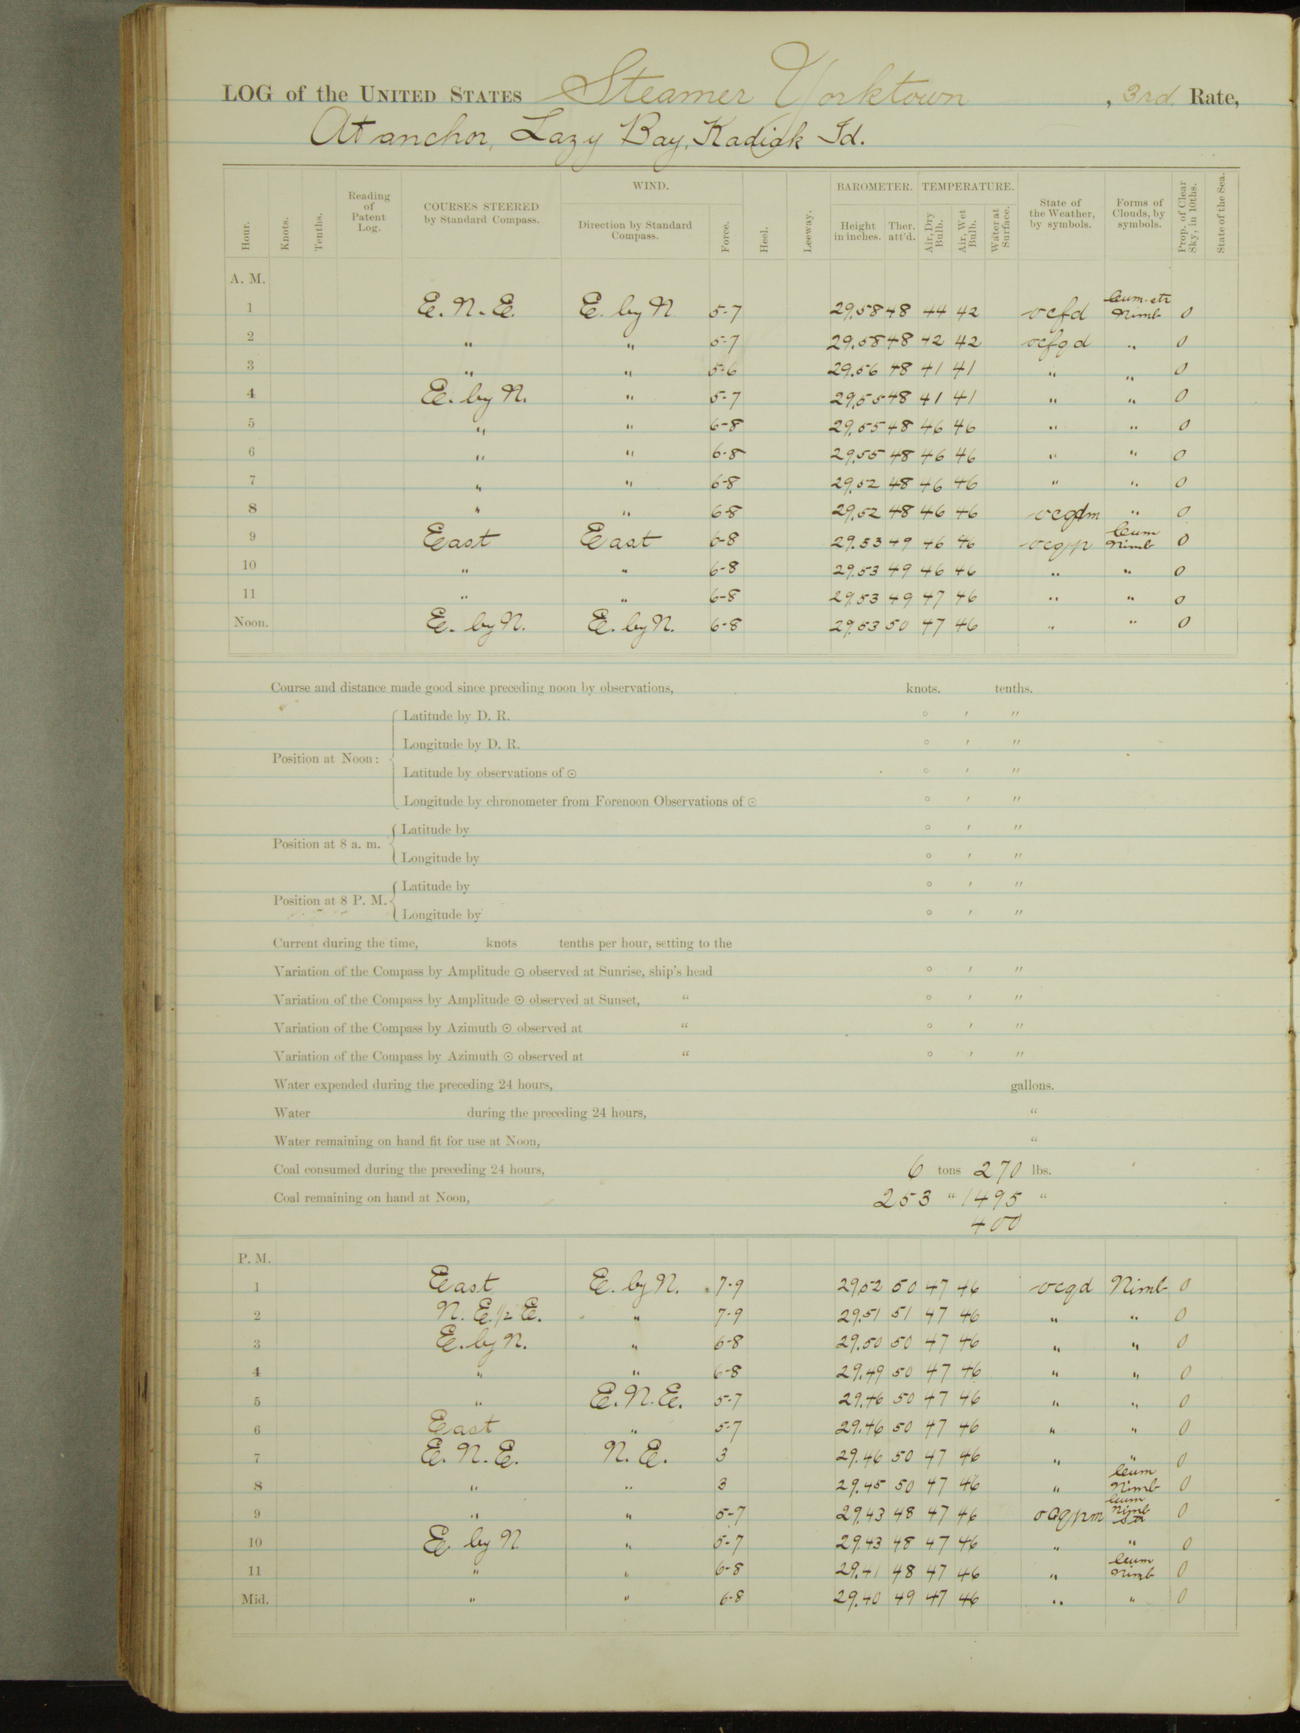 LOG of the UNITED STATES Steamer Yorktown, 3rd Rate,
At anchor, Lazy Bay, Kadiak Id.
Hour. Knots. Tenths. Reading of Patent Log. COURSES STEERED by Standard Compass. WIND. Direction by Standard Compass. Force. Heel. Leeway. BAROMETER. Height in inches. Ther. att'd. TEMPERATURE. Air, Dry Bulb. Air, Wet Bulb. Water at Surface. State of the Weather, by symbols. Forms of Clouds, by symbols. Prop. of Clear Sky, in 10ths. State of the Sea.
A. M.
1 E. N. E. E. by N 5-7 29.58 48 44 42 ocfd Cum-str Nimb 0
2 " " 5-7 29.58 48 42 42 ocfqd " 0
3 " " 5-6 29.56 48 41 41 " " 0
4 E. by N. " 5-7 29.55 48 41 41 " " 0
5 " " 6-8 29.55 48 46 46 " " 0
6 " " 6-8 29.55 48 46 46 " " 0
7 " " 6-8 29.52 48 46 46 " " 0
8 " " 6-8 29.52 48 46 46 ocqdm " 0
9 East East 6-8 29.53 49 46 46 ocqp Cum Nimb 0
10 " " 6-8 29.53 49 46 46 " " 0
11 " " 6-8 29.53 49 47 46 " " 0
Noon. E. by N. E. by N. 6-8 29.53 50 47 46 " " 0
Course and distance made good since preceding noon by observations, knots. tenths.
Position at Noon: Latitude by D. R. ° ′ ″
Longitude by D. R. ° ′ ″
Latitude by observations of ⊙ ° ′ ″
Longitude by chronometer from Forenoon Observations of ⊙ ° ′ ″
Position at 8 a. m. Latitude by ° ′ ″
Longitude by ° ′ ″
Position at 8 P. M. Latitude by ° ′ ″
Longitude by ° ′ ″
Current during the time, knots tenths per hour, setting to the
Variation of the Compass by Amplitude ⊙ observed at Sunrise, ship's head ° ′ ″
Variation of the Compass by Amplitude ⊙ observed at Sunset, " ° ′ ″
Variation of the Compass by Azimuth ⊙ observed at " ° ′ ″
Variation of the Compass by Azimuth ⊙ observed at " ° ′ ″
Water expended during the preceding 24 hours, gallons.
Water during the preceding 24 hours, "
Water remaining on hand fit for use at Noon, "
Coal consumed during the preceding 24 hours, 6 tons 270 lbs.
Coal remaining on hand at Noon, 253 " 1495 "
400
P. M.
1 East E. by N. 7-9 29.52 50 47 46 ocqd Nimb 0
2 N. E. 1/2 E. " 7-9 29.51 51 47 46 " " 0
3 E. by N. " 6-8 29.50 50 47 46 " " 0
4 " " 6-8 29.49 50 47 46 " " 0
5 " E. N. E. 5-7 29.46 50 47 46 " " 0
6 East " 5-7 29.46 50 47 46 " " 0
7 E. N. E. N. E. 3 29.46 50 47 46 " " 0
8 " " 3 29.45 50 47 46 " Cum Nimb 0
9 " " 5-7 29.43 48 47 46 ocqpm Cum Nimb Str 0
10 E by N " 5-7 29.43 48 47 46 " " 0
11 " " 6-8 29.41 48 47 46 " Cum Nimb 0
Mid. " " 6-8 29.40 49 47 46 " " 0